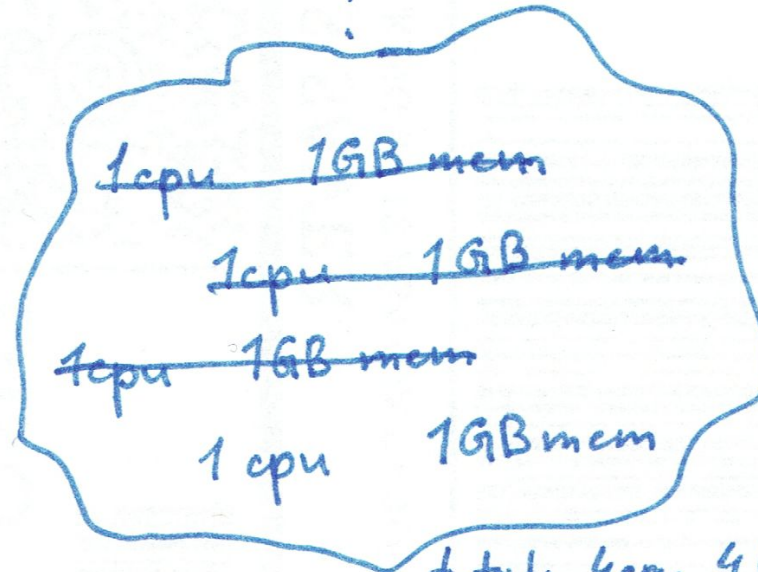 1cpu 1GB mem
1cpu 1GB mem
1cpu 1GB mem
1 cpu 1GB mem